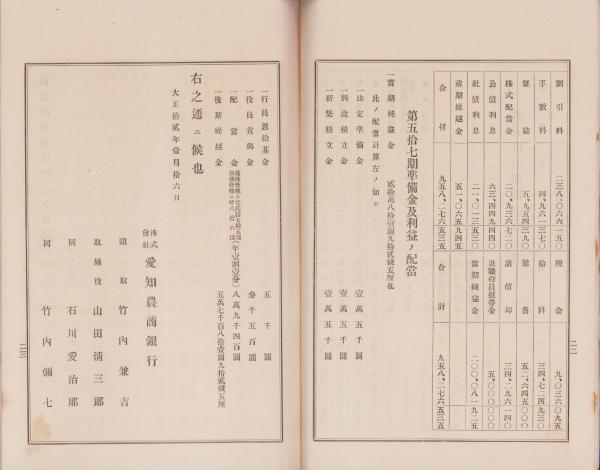 割引料 二三八、〇六六一五〇 税金 九、〇三六〇九五
手數料 四、九六一三七〇 給料 三四、七二四九三〇
雜益 五九、九五四三九〇 雜費 五二、六四五〇〇〇
株式配當金 二〇、九三六七二〇 諸償却 三四、二九六一四〇
公債利息 六三、四四九四四〇 退職役員慰勞金 五、〇〇〇〇〇〇
社債利息 二一、〇一三五三〇 當期純益金 二〇〇、〇八一九二五
前期繰越金 五一、〇六五九四五
合計 九五八、二七六五三五 合計 九五八、二七六五三五
第五拾七期準備金及利益ノ配當
一當期純益金 貳拾萬八拾壹圓九拾貳錢五厘也
此ノ配當計算左ノ如シ
一法定準備金 壹萬五千圓
一別途積立金 壹萬五千圓
一新築積立金 壹萬五千圓
二二
一行員恩給基金 五千圓
一役員賞與金 參千五百圓
一配當金 (年壹割壹分) 八萬九千四百圓
一後期繰越金 五萬七千百八拾壹圓九拾貳錢五厘
右之通ニ候也
大正拾貳年壹月拾六日
株式會社 愛知農商銀行
頭取 竹內兼吉
取締役 山田清三郎
同 石川愛治郎
同 竹內彌七
二三